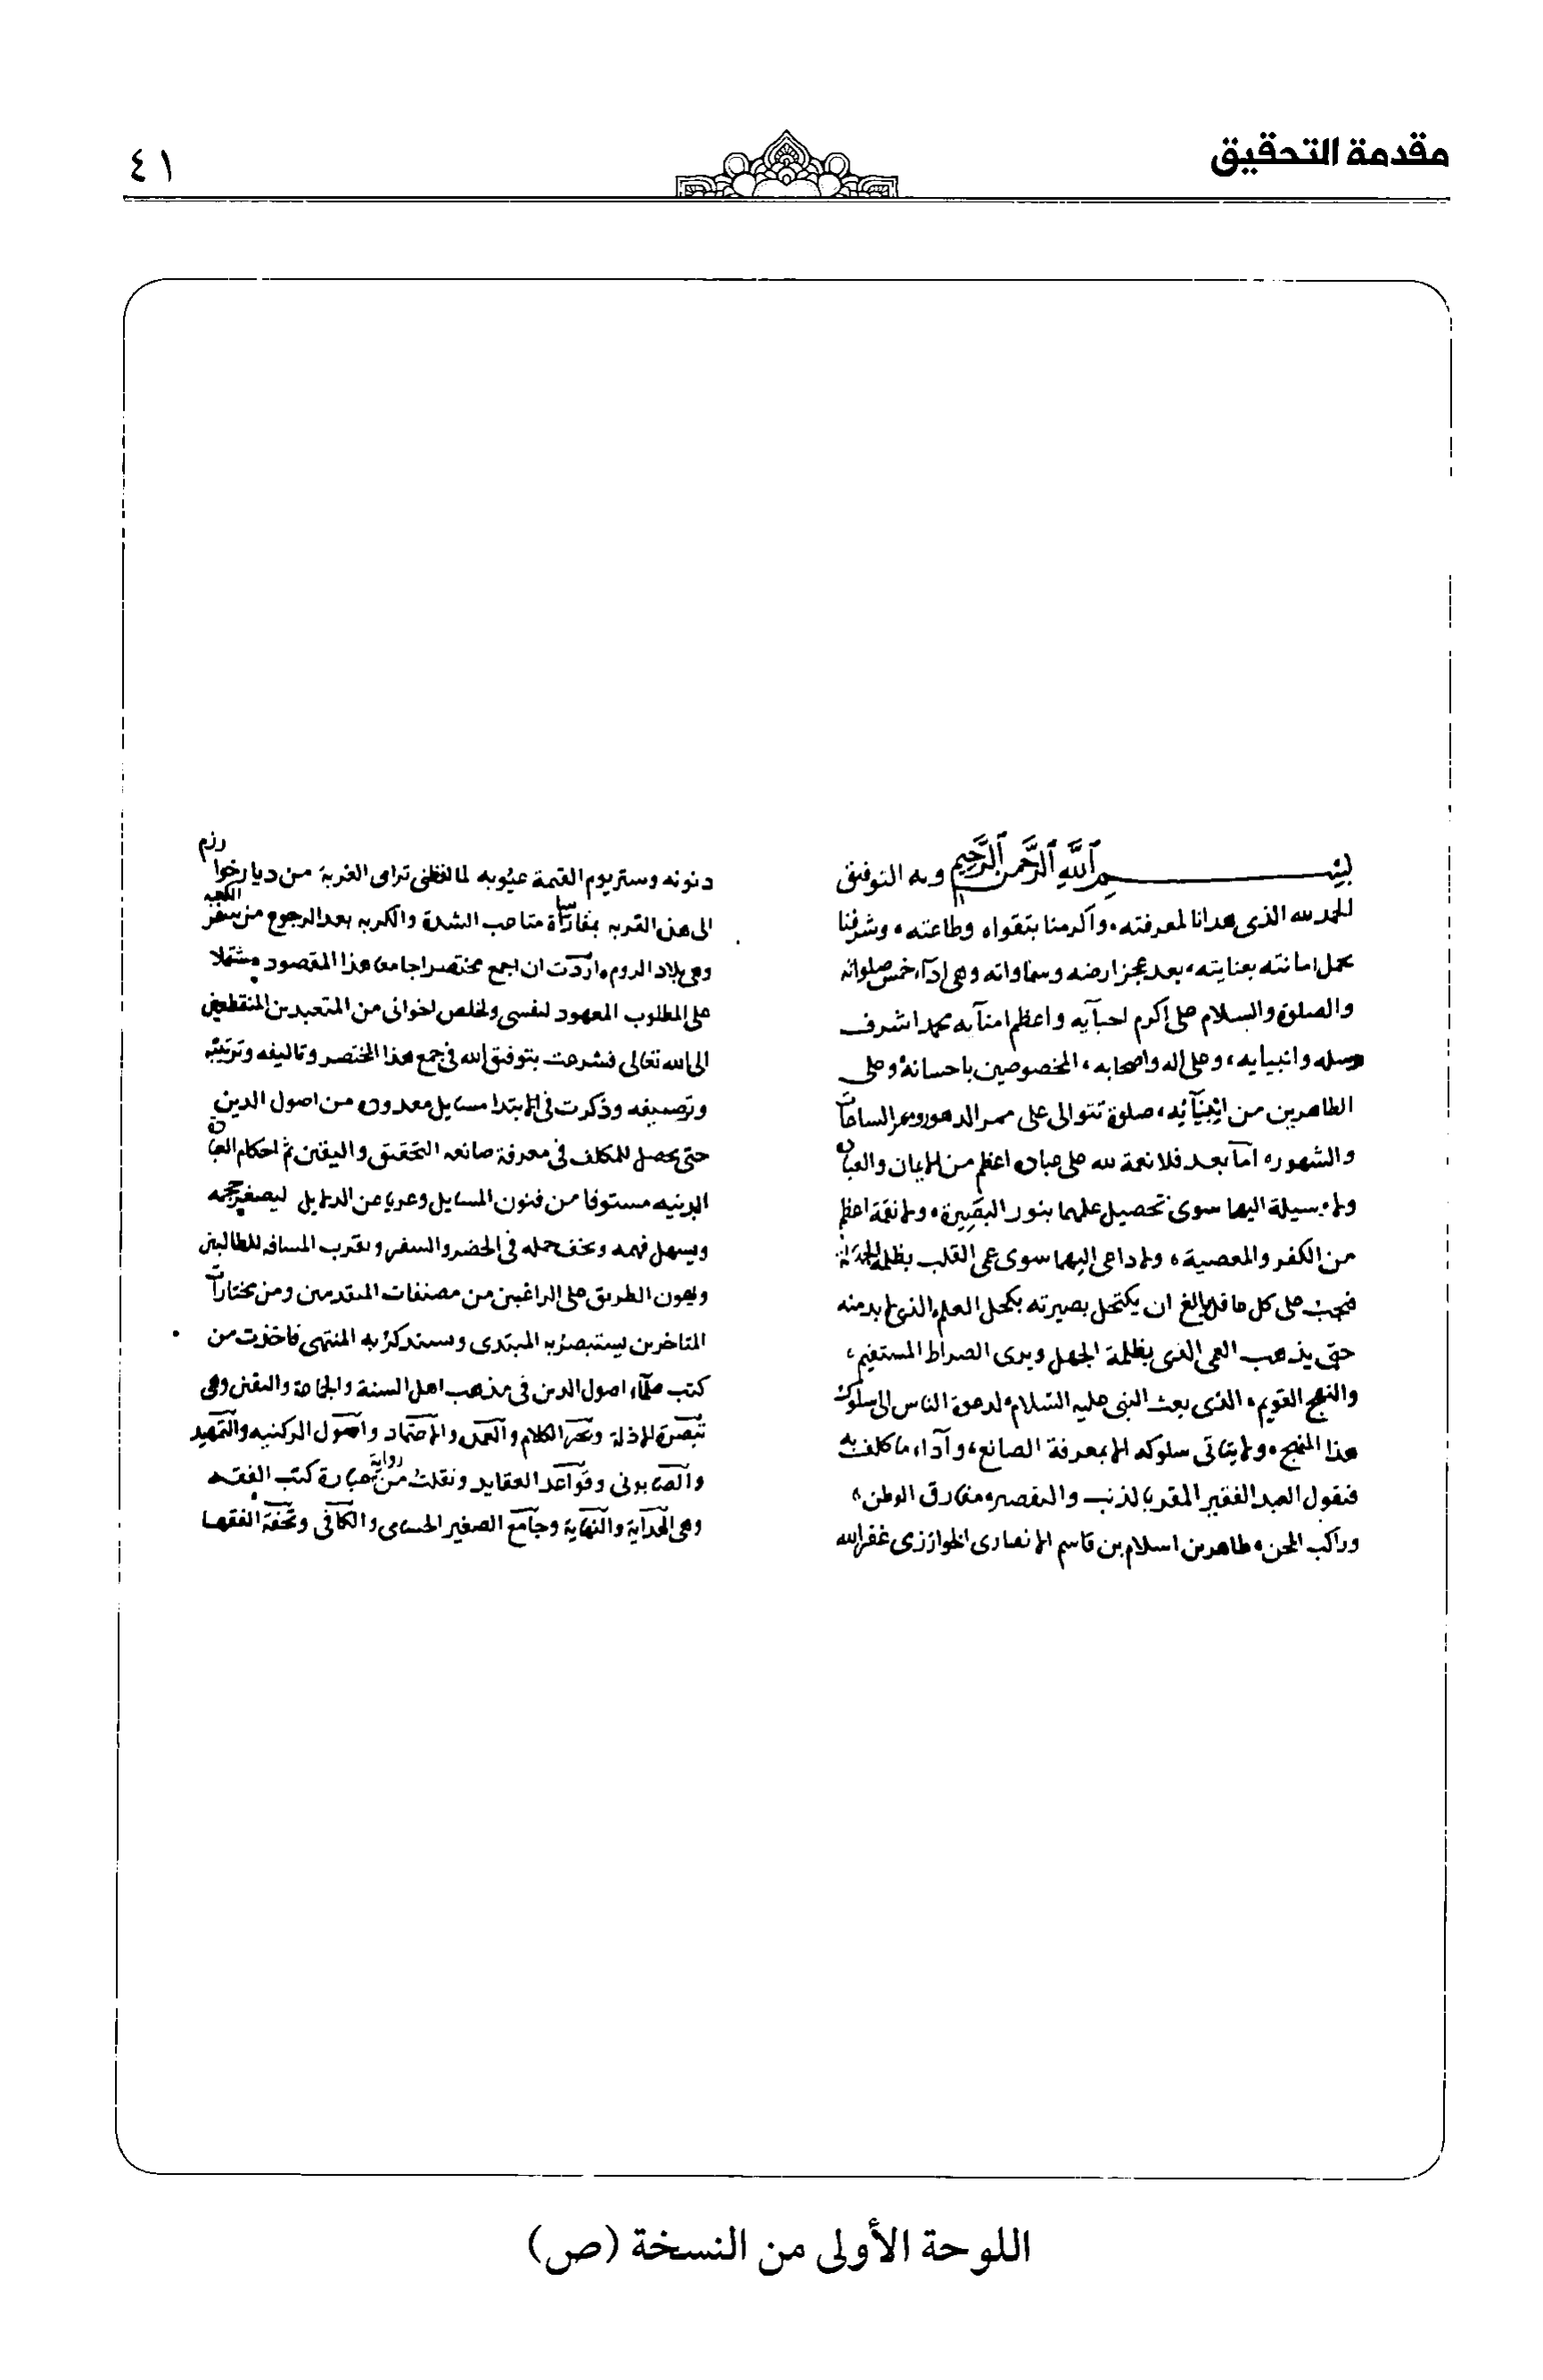 مقدمة التحقيق
٤١
بسم الله الرحمن الرحيم وبه التوفيق
الحمد لله الذى هدانا لمعرفته، وأكرمنا بتقواه وطاعته، وشرفنا
بحمل امانته بعنايته، بعد عجز ارضه وسماواته وهى اداء خمس صلواته
والصلوة والسلام على اكرم احبآيه واعظم امنآيه محمد اشرف
رسله وانبيايه، وعلى اله واصحابه، المخصوصين باحسانه وعلى
الطاهرين من صلوة تتوالى على ممر الدهور وممر الساعات
والشهور، امآ بعد فلا نعمة لله على عباده اعظم من الايمان والعبادة
ولا وسيلة اليها سوى تحصيل علمها بنور البصيرة، ولا نقمة اعظم
من الكفر والمعصية، ولا داعى اليهما سوى عمى القلب بظلمة
فيجب على كل عاقل بالغ ان يكتحل بصيرته بكحل العلم الذى لابد منه
حتى يذهب العمى الذى بظلمة الجهل ويرى الصراط المستقيم،
والنهج القويم، الذى بعث النبى عليه السلام لدعوة الناس الى سلوك
هذا المنهج، ولا يتاتى سلوكه الا بمعرفة الصانع، وآداء ما كلف به
فيقول العبد الفقير المقر بالذنب والتقصير، مفارق الوطن،
وراكب المحن، طاهر بن اسلام بن قاسم الانصارى الخوارزمى غفر الله
ذنوبه وستر يوم القيمة عيوبه لما لفظنى ترامى الغربة من ديار خوارزم
الى هذه القربه متاعب الشدة والكربه بعد الرجوع من سفر الكعبه
وهى بلاد الروم، اردت ان اجمع مختصرا جامعا هذا المقصود مشتملا
على المطلوب المعهود لنفسى ولخلص اخوانى من المتعبدين المنقطعين
الى الله تعالى فشرعت بتوفيق الله فى جمع هذا المختصر وتاليفه وترتيبه
وتصنيفه وذكرت فى الابتدا مسايل معدودة من اصول الدين
حتى يحصل للمكلف فى معرفة صانعه التحقيق واليقين ثم احكام العبادة
البدنيه مستوفا من فنون المسايل وعريا عن الدلايل ليصغر حجمه
ويسهل فهمه ويخف حمله فى الحضر والسفر ويقرب المسافه للطالبين
ويهون الطريق على الراغبين من مصنفات المتقدمين ومن مختارات
المتاخرين ليستبصر به المبتدى ويستذكر به المنتهى فاخذت من
كتب علمآء اصول الدين فى مذهب اهل السنة والجماعة واليقين وهى
تبصرة الادلة وبحر الكلام والعمدة والاعتماد واصول الركنيه والتمهيد
والصابونى وقواعد العقايد ونقلت من رواية عبارة كتب الفقه
وهى الهداية والنهاية وجامع الصغير الحسامى والكافى وتحفة الفقهآ
اللوحة الأولى من النسخة (ص)